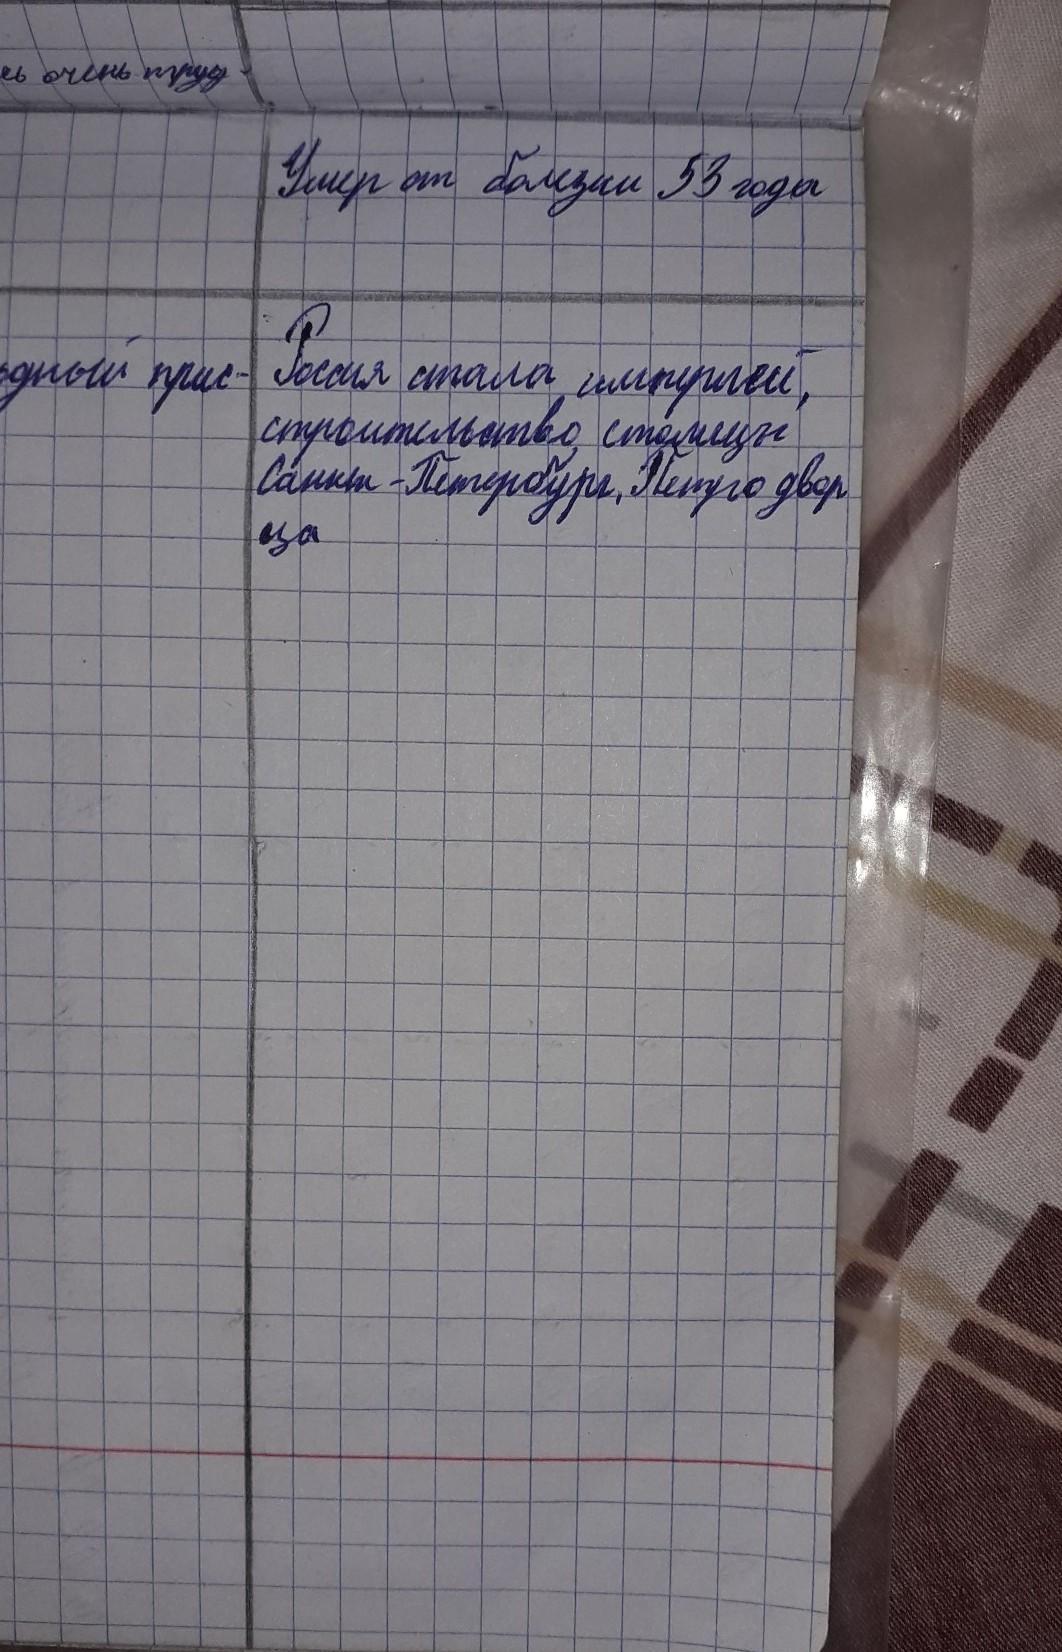 сь очень труд-
Умер от болезни 53 года
одный прис-
Россия стала империей,
строительство столицы
Санкт-Петербург,
двор
ца